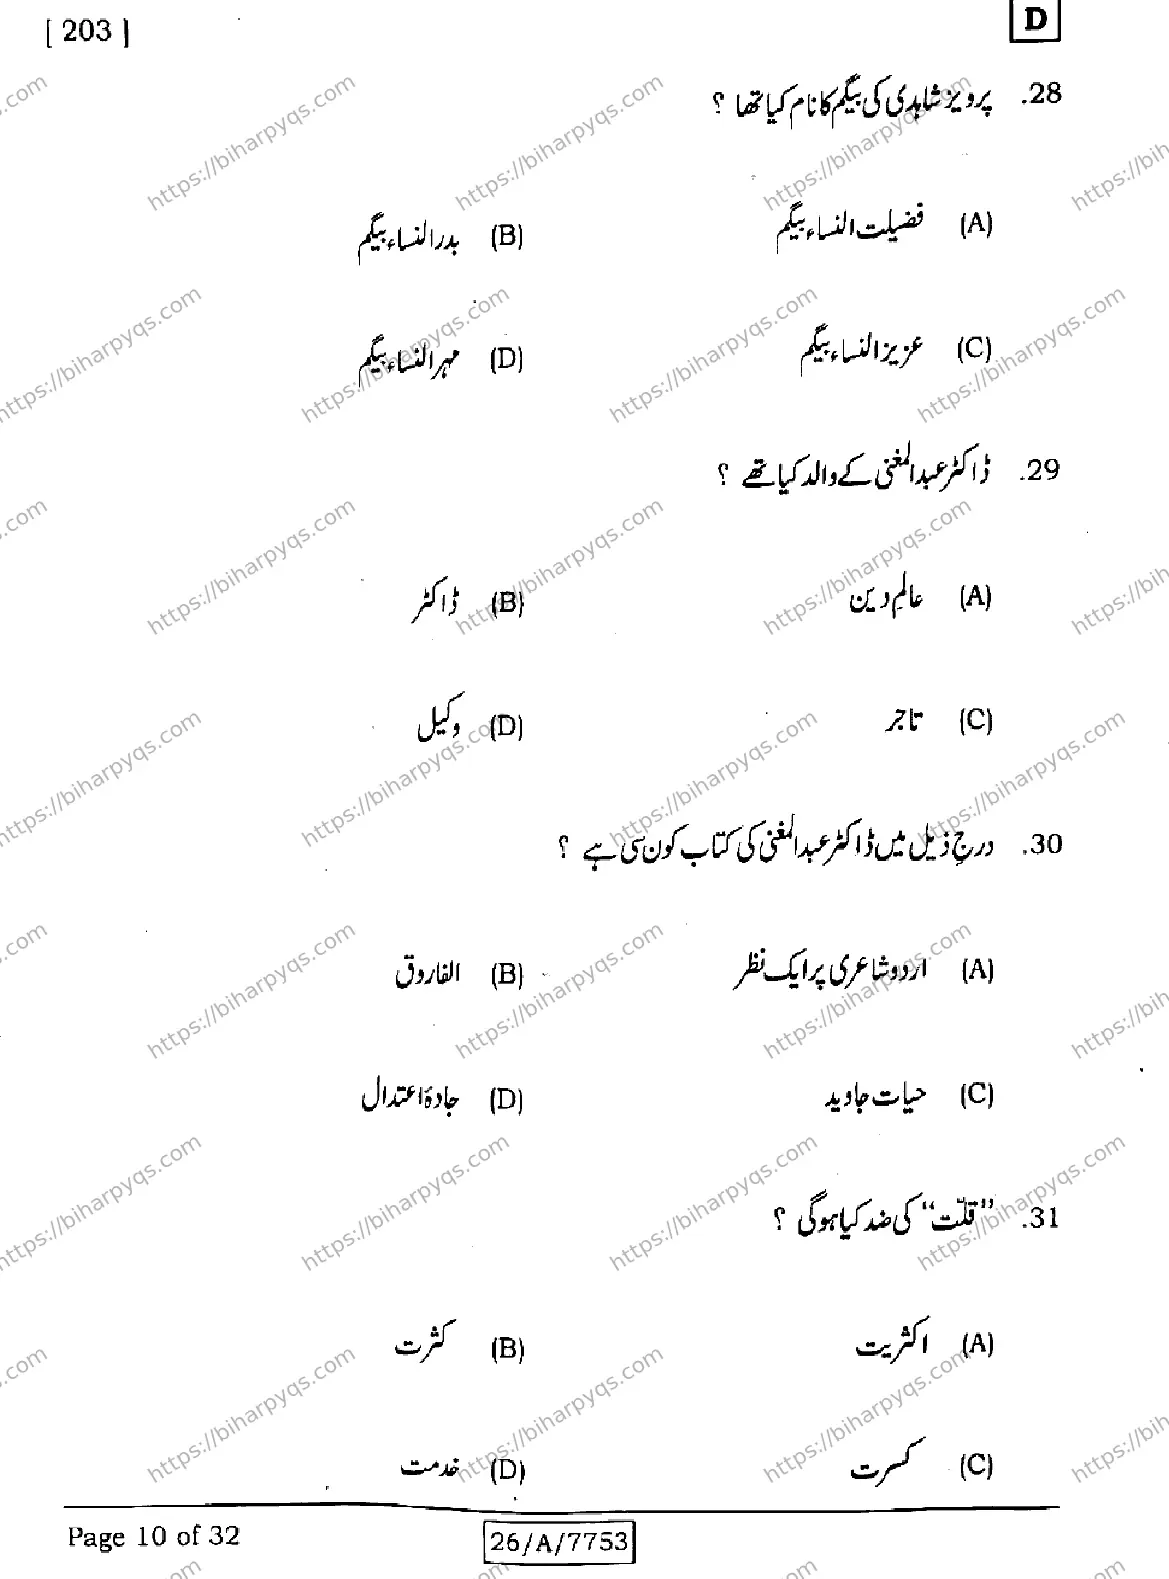 [ 203 ]
D
28. پرویز شاہدی کی بیگم کا نام کیا تھا ؟
(A) فضیلت النساء بیگم (B) بدر النساء بیگم
(C) عزیز النساء بیگم (D) مہر النساء بیگم
29. ڈاکٹر عبدالمغنی کے والد کیا تھے ؟
(A) عالم دین (B) ڈاکٹر
(C) تاجر (D) وکیل
30. درج ذیل میں ڈاکٹر عبدالمغنی کی کتاب کون سی ہے ؟
(A) اردو شاعری پر ایک نظر (B) الفاروق
(C) حیات جاوید (D) جادۂ اعتدال
31. ”قلّت“ کی ضد کیا ہوگی ؟
(A) اکثریت (B) کثرت
(C) کسرت (D) خدمت
Page 10 of 32
26/A/7753
https://biharpyqs.com